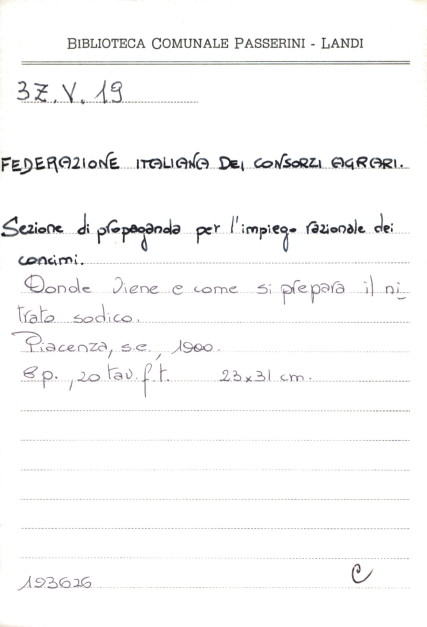 BIBLIOTECA COMUNALE PASSERINI - LANDI
3Z.V. 19
FEDERAZIONE ITALIANA DEI CONSORZI AGRARI.
Sezione di propaganda per l'impiego razionale dei
concimi.
Donde viene e come si prepara il ni_
trato sodico.
Piacenza, s.e., 1900.
8 p., 20 tav. f.t. 23x31 cm.
193626
C